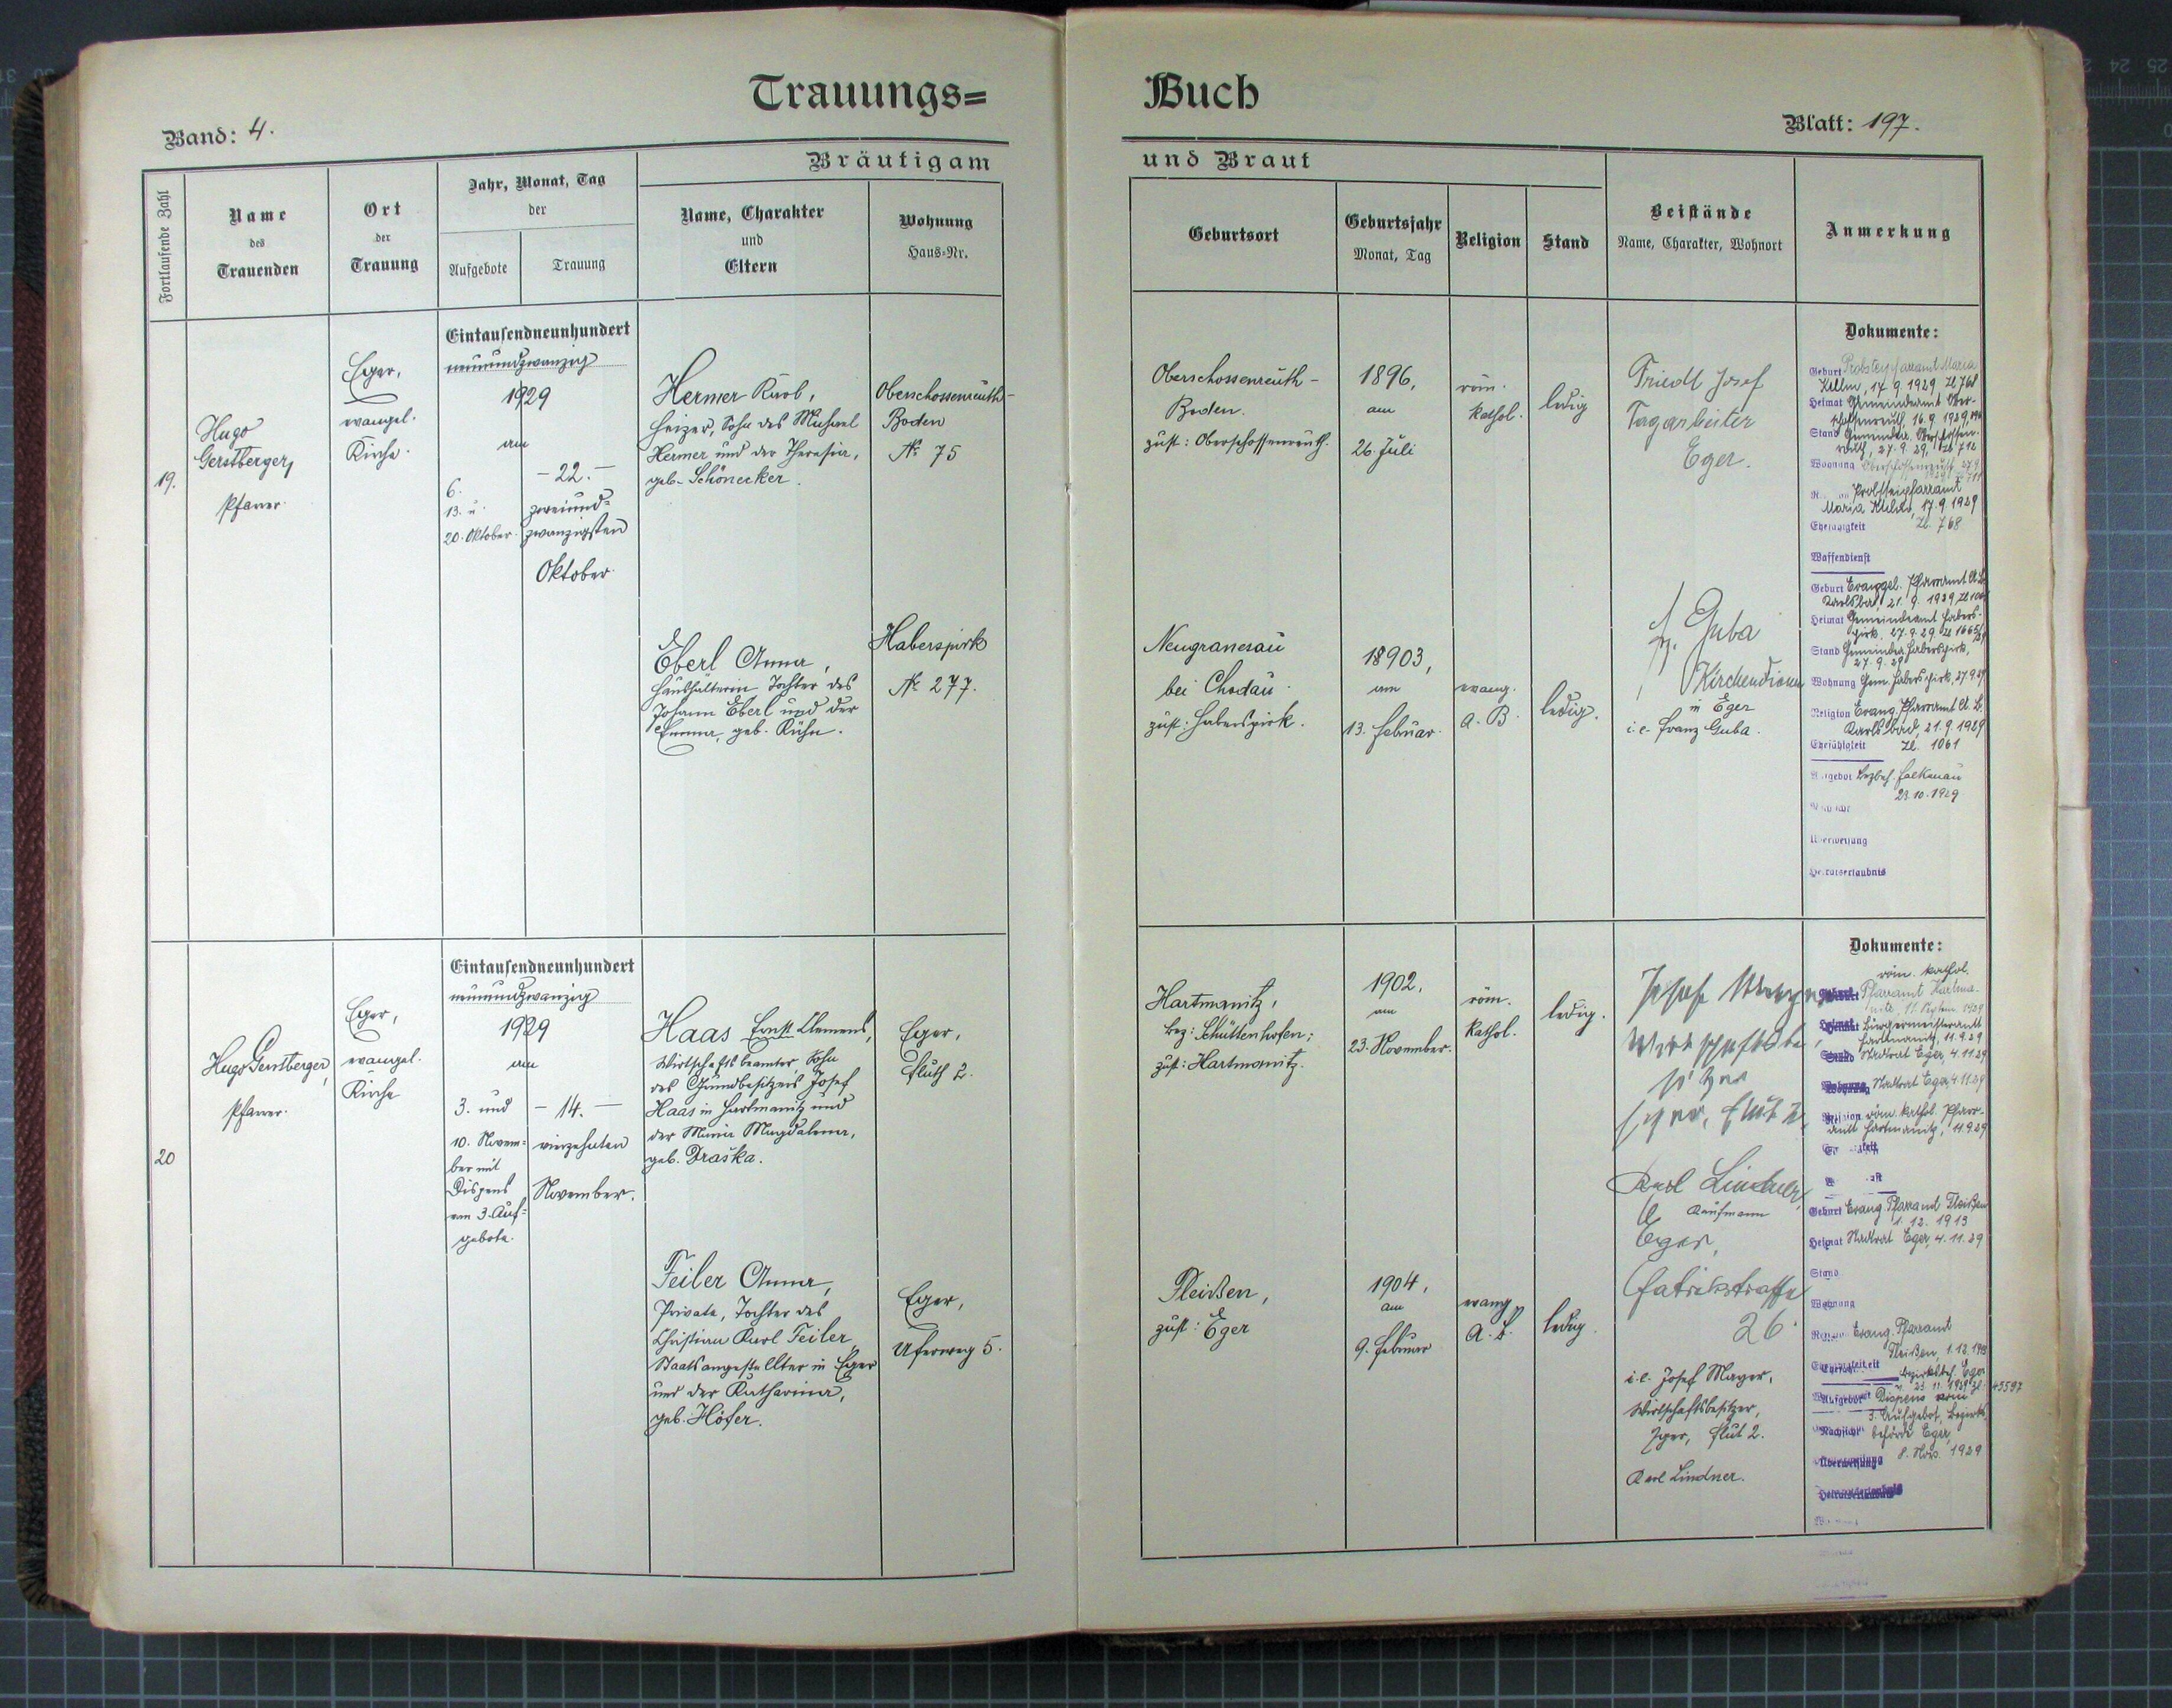 Trauungs=
Buch
Band: 4.
Blatt: 197.
Bräutigam
und Braut
Fortlaufende Zahl
Name
des
Trauenden
Ort
der
Trauung
Jahr, Monat, Tag
der
Aufgebote
Trauung
Name, Charakter
und
Eltern
Wohnung
Haus-Nr.
Geburtsort
Geburtsjahr
Monat, Tag
Religion
Stand
Beistände
Name, Charakter, Wohnort
Anmerkung
19.
Hugo
Gerstberger,
Pfarrer.
Eger,
evangel.
Kirche.
Eintausendneunhundert
neunundzwanzig
1929
am
6.
13. u.
20. Oktober.
- 22. -
zweiund=
zwanzigsten
Oktober.
Hermer Karl,
Heizer, Sohn des Michael
Hermer und der Theresia,
geb. Schönecker.
Oberschossenreuth-
Boden
No 75
Eberl Anna,
Haushälterin Tochter des
Johann Eberl und der
Emma, geb. Kühn.
Haberspirk
No 277.
Oberschossenreuth-
Boden.
zust: Oberschossenreuth.
1896,
am
26. Juli
röm.
kathol.
ledig
Friedl Josef
Tagarbeiter
Eger.
Neugranesau
bei Chodau.
zust: Haberspirk.
18903,
am
13. Februar.
evang.
A. B.
ledig.
Fz. Guba
Kirchendiener
in Eger
i. e. Franz Guba.
Dokumente:
Geburt Probsteipfarramt Maria
Kulm, 17. 9. 1929 Zl. 768
Heimat Gemeindeamt Ober-
schossenreuth, 16. 9. 1929,
Stand
27. 9. 29,
Wohnung Oberschossenreuth 27.9.
Probsteipfarramt
Maria Kulm, 17. 9. 1929
Ehefähigkeit Zl. 768
Waffendienst
Geburt Evangel. Pfarramt A. B.
Karlsbad, 21. 9. 1929
Heimat Gemeindeamt Habers-
pirk. 27. 9. 29
Stand Gemeindea. Haberspirk,
27. 9. 29
Wohnung Gem. Haberspirk, 27.9.29
Religion Evang. Pfarramt A. B.
Karlsbad, 21. 9. 1929
Ehefähigkeit Zl. 1061
Falkenau
23. 10. 1929
Überweisung
Heiratserlaubnis
20
Hugo Gerstberger,
Pfarrer.
Eger,
evangel.
Kirche
Eintausendneunhundert
neunundzwanzig
1929
am
3. und
10. Novem=
ber mit
Dispens
vom 3. Auf=
gebote.
- 14. -
vierzehnten
November.
Haas Ernst Clemens,
Wirtschaftsbeamter, Sohn
des Grundbesitzers Josef
Haas in Hartmanitz und
der Maria Magdalena,
geb. Draška.
Eger,
Fluth 2.
Feiler Anna,
Private, Tochter des
Christian Karl Feiler,
Staatsangestellter in Eger
und der Katharina,
geb. Höfer.
Eger,
Uferweg 5.
Hartmanitz,
bez: Schüttenhofen;
zust: Hartmanitz.
1902,
am
23. November.
röm.
kathol.
ledig.
Fleißen,
zust: Eger
1904,
am
9. Februar
evang.
A. B.
ledig.
Josef Mayer,
Wirtschaftsbe-
sitzer
Eger, Flut 2.
Karl Lindner,
Kaufmann
Eger,
Fabrikstraße
26.
i. e. Josef Mayer,
Wirtschaftsbesitzer,
Eger, Flut 2.
Karl Lindner.
Dokumente:
röm. kathol.
Pfarramt Hartma-
nitz, 11. Septem. 1929
Heimat Bürgermeisteramt
Hartmanitz, 11. 9. 29
Stand Stadtrat Eger, 4. 11. 29
Wohnung Stadtrat Eger 4. 11. 29
Religion röm. kathol. Pfarr-
amt Hartmanitz, 11. 9. 29
Geburt Evang. Pfarramt Fleißen
1. 12. 1913
Heimat Stadtrat Eger, 4. 11. 29
Stand
Wohnung
Evang. Pfarramt
Fleißen, 1. 12. 1913
Bezirksbeh. Eger
45597
Aufgebot Dispens vom
3. Aufgebot, Bezirks-
Nachsicht behörde Eger,
8. Nov. 1929
Überweisung
Heiratserlaubnis